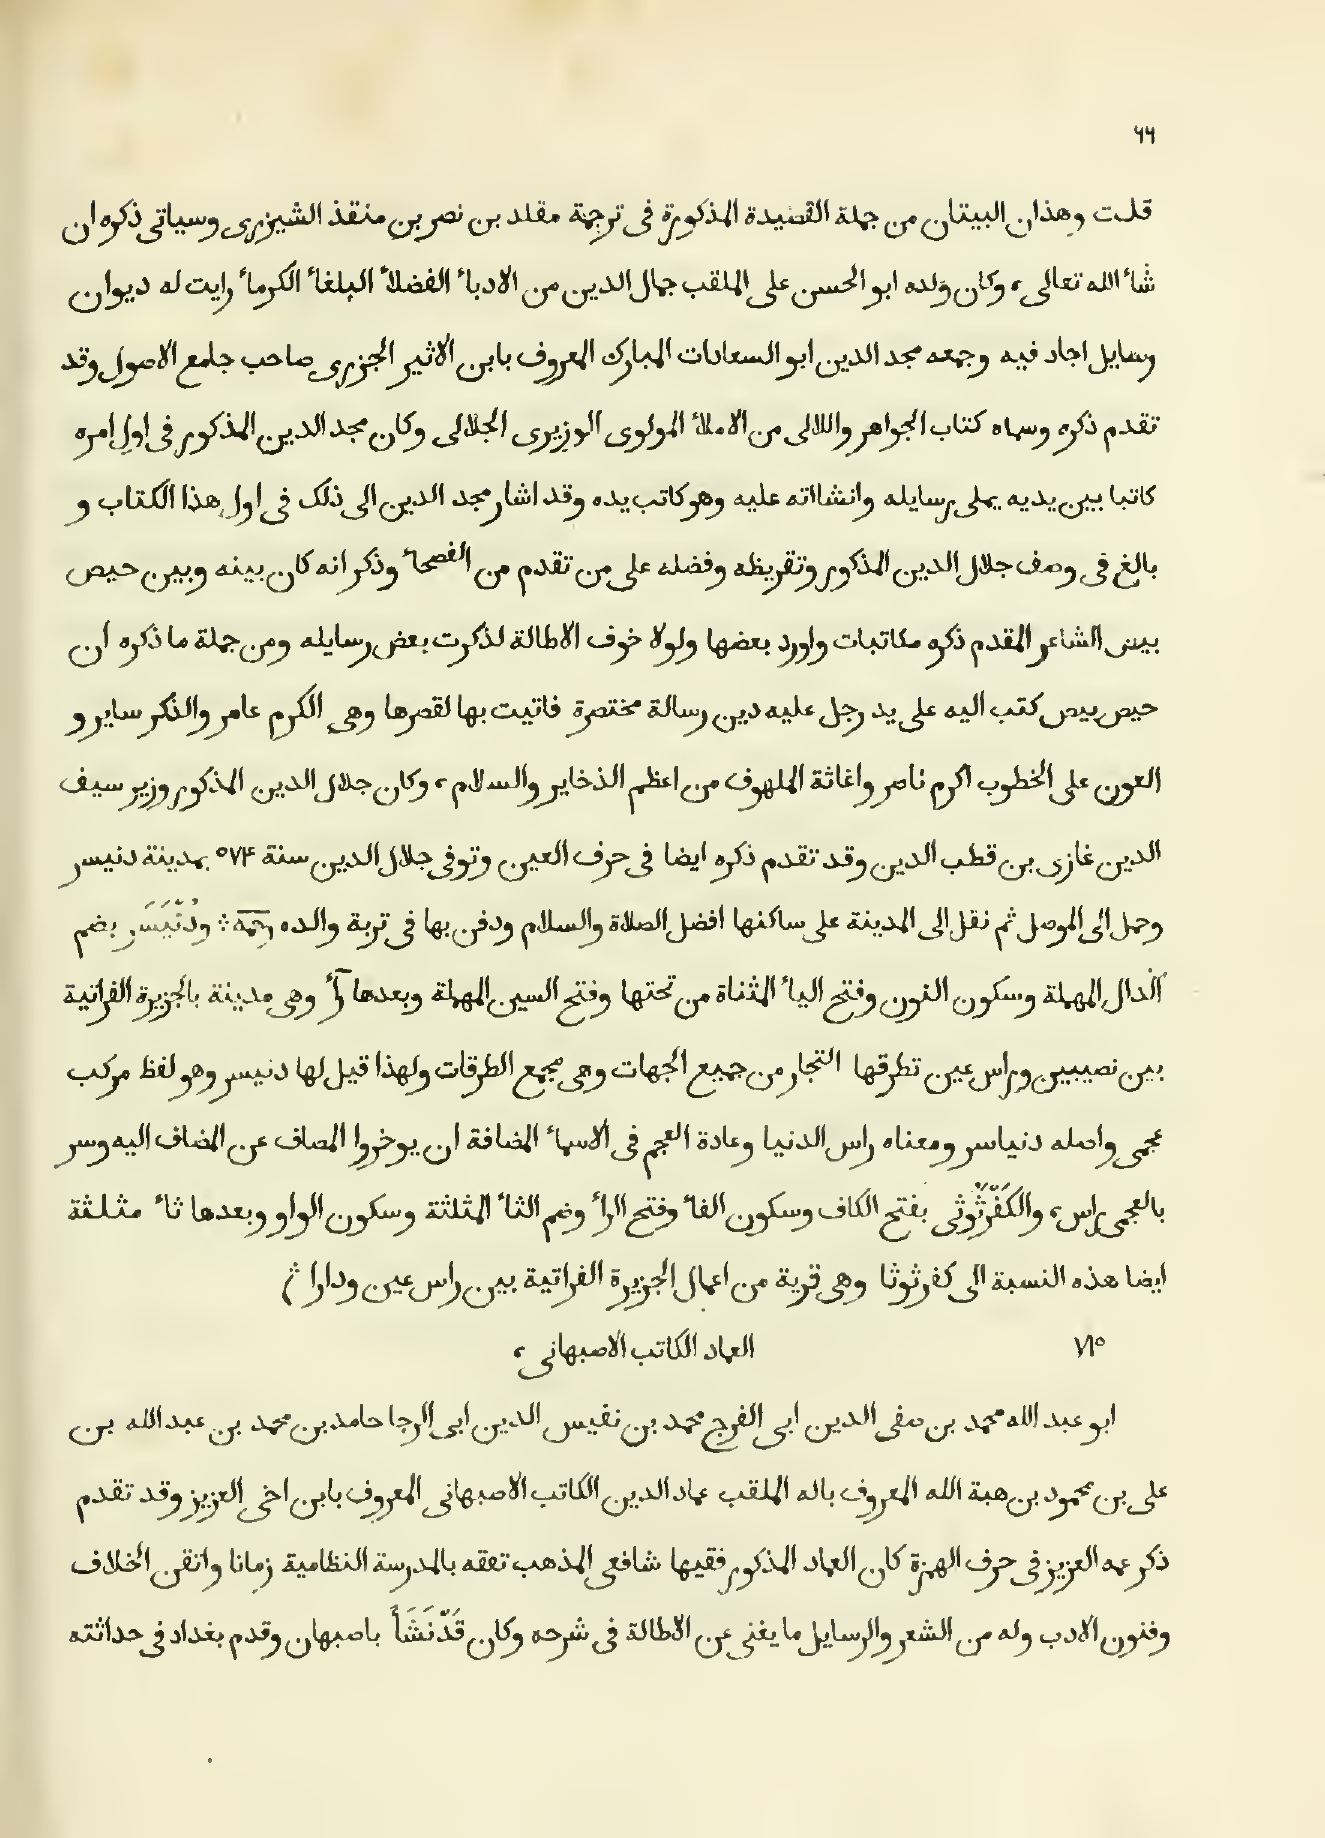 ٦٦
قلت وهذان البيتان من جملة القصيدة المذكورة فى ترجمة مقلد بن نصر بن منقذ الشيزرى وسياتى ذكره ان
شاء الله تعالى، وكان ولده ابو الحسن على الملقب جمال الدين من الادباء الفضلاء البلغاء الكرماء رايت له ديوان
رسايل اجاد فيه وجمعه مجد الدين ابو السعادات المبارك المعروف بابن الاثير الجزرى صاحب جامع الاصول وقد
تقدم ذكره وسماه كتاب الجواهر واللالى من الاملاء المولوى الوزيرى الجلالى وكان مجد الدين المذكور فى اول امره
كاتبا بين يديه يملى رسايله وانشااته عليه وهو كاتب يده وقد اشار مجد الدين الى ذلك فى اول هذا الكتاب و
بالغ فى وصف جلال الدين المذكور وتقريظه وفضله على من تقدم من الفصحاء وذكر انه كان بينه وبين حيص
بيص الشاعر المقدم ذكره مكاتبات واورد بعضها ولولا خوف الاطالة لذكرت بعض رسايله ومن جملة ما ذكره ان
حيص بيص كتب اليه على يد رجل عليه دين رسالة مختصرة فاتيت بها لقصرها وهى الكرم عامر والذكر ساير و
العون على الخطوب اكرم ناصر واغاثة الملهوف من اعظم الذخاير والسلام، وكان جلال الدين المذكور وزير سيف
الدين غازى بن قطب الدين وقد تقدم ذكره ايضا فى حرف العين وتوفى جلال الدين سنة ٥٧۴ بمدينة دنيسر
وحمل الى الموصل ثم نقل الى المدينة على ساكنها افضل الصلاة والسلام ودفن بها فى تربة والده رحمه ؞ ودُنَيسَر بضم
الدال المهملة وسكون النون وفتح الياء المثناة من تحتها وفتح السين المهملة وبعدها رآء وهى مدينة بالجزيرة الفراتية
بين نصيبين وراس عين تطرقها التجار من جميع الجهات وهى مجمع الطرقات ولهذا قيل لها دنيسر وهو لفظ مركب
عجمى واصله دنياسر ومعناه راس الدنيا وعادة العجم فى الاسماء المضافة ان يوخروا المضاف عن المضاف اليه وسر
بالعجمى راس، والكَفْرَثُوثى بفتح الكاف وسكون الفاء وفتح الراء وضم الثاء المثلثة وسكون الواو وبعدها ثاء مثلثة
ايضا هذه النسبة الى كفرثوثا وهى قرية من اعمال الجزيرة الفراتية بين راس عين ودارا ؞
٧١٥ العماد الكاتب الاصبهانى،
ابو عبد الله محمد بن صفى الدين ابى الفرج محمد بن نفيس الدين ابى الرجا حامد بن محمد بن عبد الله بن
على بن محمود بن هبة الله المعروف باله الملقب عماد الدين الكاتب الاصبهانى المعروف بابن اخى العزيز وقد تقدم
ذكر عمه العزيز فى حرف الهمزة كان العماد المذكور فقيها شافعى المذهب تفقه بالمدرسة النظامية زمانا واتقن الخلاف
وفنون الادب وله من الشعر والرسايل ما يغنى عن الاطالة فى شرحه وكان قَدْ نَشَأَ باصبهان وقدم بغداد فى حداثته